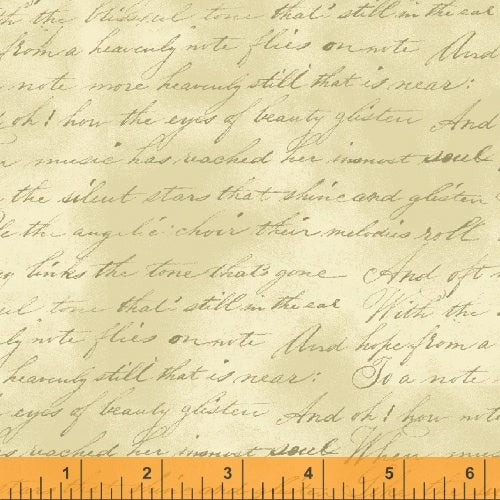 the blissful tone that's still in the ear
from a heavenly note flies on note And
note more heavenly still that is near:
oh! how the eyes of beauty glisten And
music has reached her inmost soul
the silent stars that shine and glisten
the angelic choir their melodies roll
links the tone that's gone And oft
tone that's still in the ear With the
note flies on note And hope from a
heavenly still that is near: To a note
eyes of beauty glisten And oh! how
reached her inmost soul When music
1 2 3 4 5 6